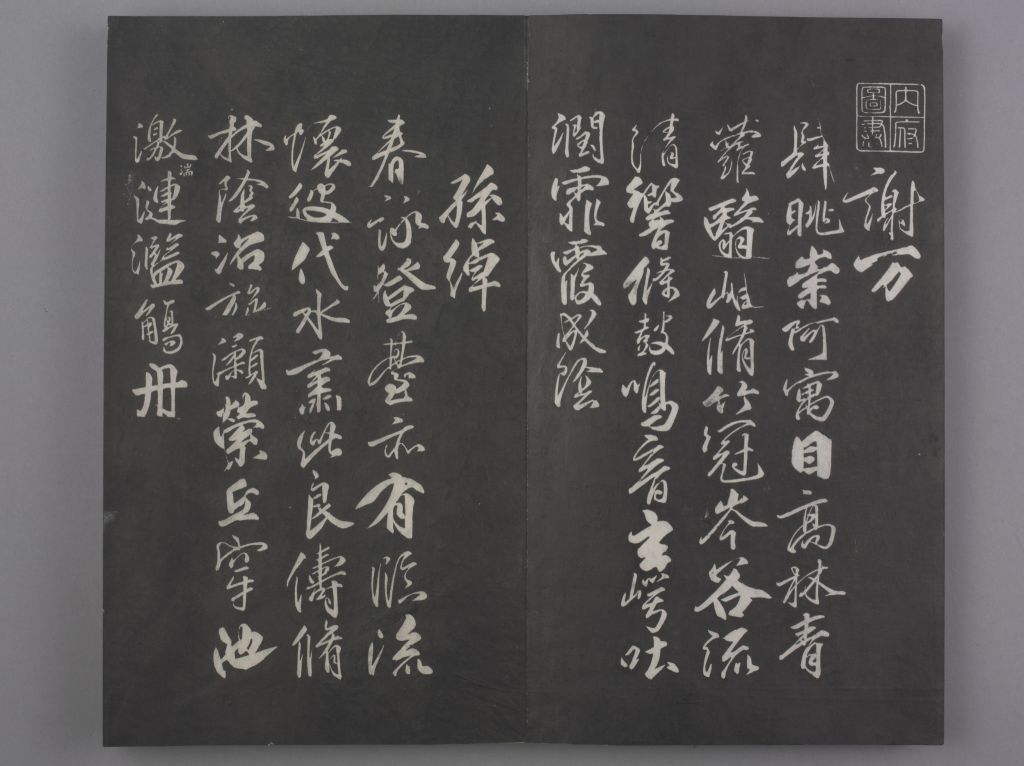 內府
圖書
謝万
肆眺崇阿寓目高林青
蘿翳岫脩竹冠岑谷流
清響條鼓鳴音玄崿吐
潤霏霞成陰
孫綽
春詠登臺亦有臨流
懷彼伐木肅此良儔脩
林陰沼旋瀨縈丘穿池
激湍漣濫觴舟